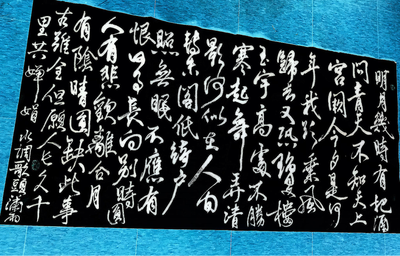 明月幾時有把酒
問青天不知天上
宮闕今夕是何
年我欲乘風
歸去又恐瓊樓
玉宇高處不勝
寒起舞弄清
影何似在人间
转朱閣低绮户
照無眠不應有
恨何事長向别時圓
人有悲歡離合月
有陰晴圓缺此事
古難全但願人长久千
里共嬋娟 水调歌頭